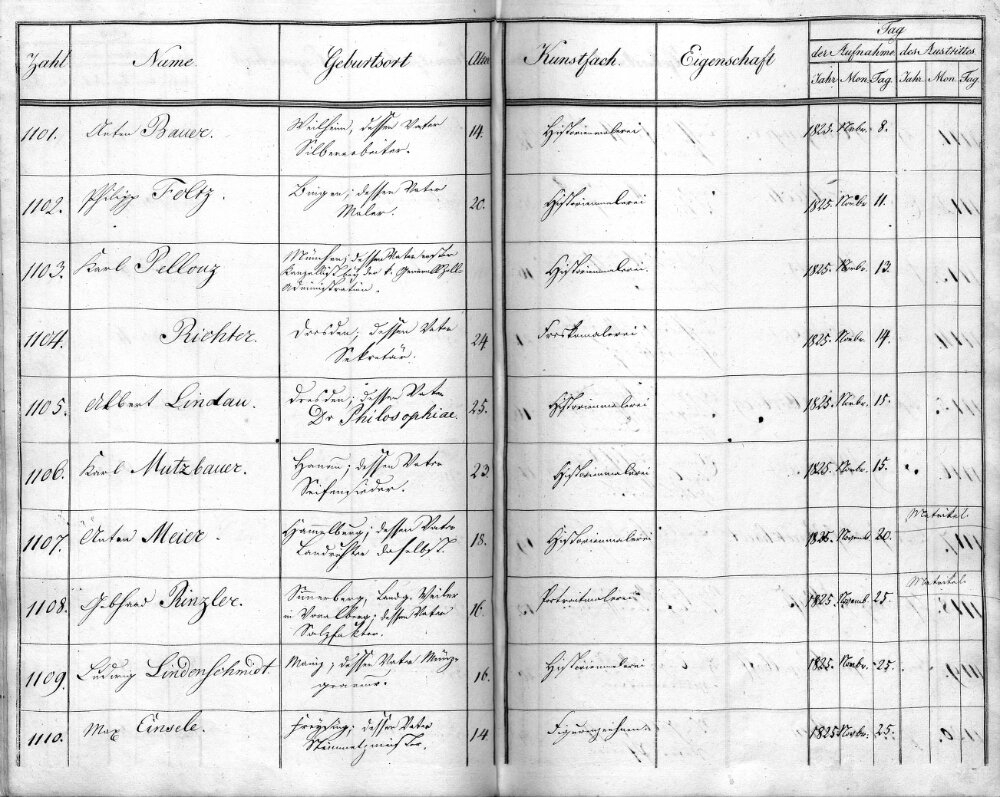 Tag
Zahl Name. Geburtsort Alter Kunstfach. Eigenschaft der Aufnahme des Austrittes
Jahr Mon. Tag. Jahr. Mon. Tag
1101. Anton Bauer. Weilheim, dessen Vater 14. Historienmalerei 1825. Novbr. 8.
Silberarbeiter.
1102. Philipp Foltz. Bingen; dessen Vater 20. Historienmalerei 1825. Novbr. 11.
Maler.
1103. Karl Pellouz München; dessen Vater erster Historienmalerei. 1825. Novbr. 13.
Kanzellist bey der k. General Zoll
Administration.
1104. Richter. Dresden; dessen Vater 24 Freskomalerei 1825. Novbr. 14.
Sekretär.
1105. Albert Lindau. Dresden; dessen Vater 25. Historienmalerei 1825. Novbr. 15.
Dr Philosophiae.
1106. Karl Mutzbauer. Hanau; dessen Vater 23 Historienmalerei 1825. Novbr. 15.
Seifensieder.
Matrikel
1107. Anton Meier Hammelburg; dessen Vater 18. Historienmalerei 1825. Novemb. 20.
Landrichter daselbst.
Matrikel
1108. Gebhard Rinzler. Landg. Weiler 16. Portraitmalerei 1825. Novemb. 25.
in Vorarlberg; dessen Vater
Salzfaktor.
1109. Ludwig Lindenschmidt. Mainz; dessen Vater Münz- 16. Historienmalerei 1825. Novbr. 25.
graveur.
1110. Max Einsele. Freysing; dessen Vater 14 Figurenzeichnen 1825 Novbr. 25.
Steinmetzmeister.